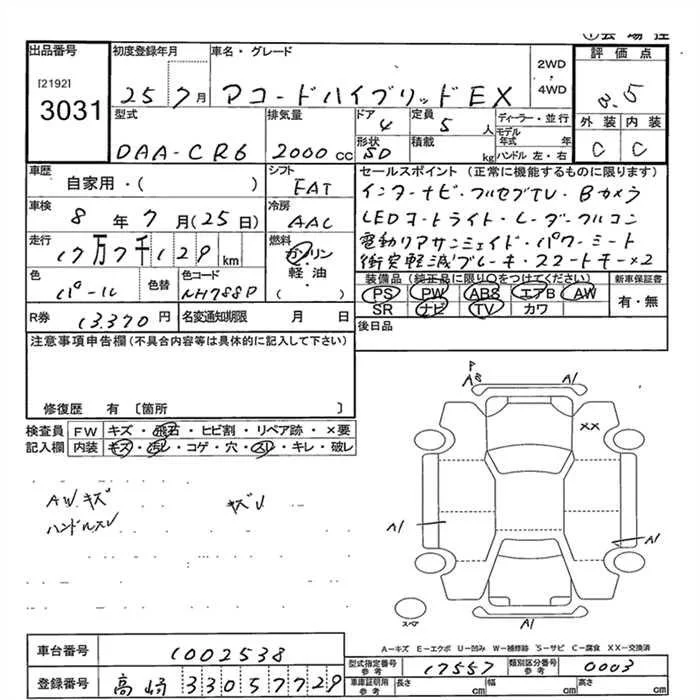 ①会場控
出品番号 初度登録年月 車名・グレード 2WD・4WD 評価点
[2192]
3031
25 7月 アコードハイブリッドEX 3.5
型式 排気量 ドア 定員 ディーラー・並行 外装 内装
DAA-CR6 2000cc 4 5人 モデル年式 年 C C
形状 積載 kg ハンドル 左・右
SD
車歴 シフト セールスポイント (正常に機能するものに限ります)
自家用・( ) FAT インターナビ・フルセグTV・Bカメラ
車検 冷房 LEDヘッドライト・レーダークルコン
8年7月(25日) AAC 電動リアサンシェイド・パワーシート
走行 燃料 衝突軽減ブレーキ・スマートキー×2
17万7千129km ガソリン
軽油
( )
色 色替 色コード 装備品 (純正品に限り○をつけてください) 新車保証書
パール NH788P PS PW ABS エアB AW 有・無
SR ナビ TV カワ
R券 13,370円 名変通知期限 月 日 後日品
注意事項申告欄(不具合内容等は具体的に記入して下さい)
修復歴 有 〔箇所 〕
検査員 FW キズ・飛石・ヒビ割・リペア跡・×要
記入欄 内装 キズ・汚レ・コゲ・穴・スレ・キレ・破レ
AWキズ キズV
ハンドルスレ
P
A3 A1
XX
A1 A1
スペア
A1
A-キズ E-エクボ U-凹み W-補修跡 S-サビ C-腐食 XX-交換済
車台番号 1002538
型式指定番号 参考 17557 類別区分番号 参考 0003
登録番号 高崎 330 5 7729
車庫証明用 参考 長さ cm 幅 cm 高さ cm